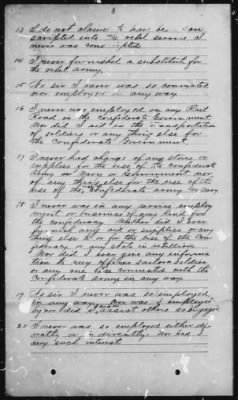 3
13 I do not claim to have been con
scripted into the rebel service I
never was conscripted
14 I never furnished a substitute for
the rebel army.
15 No sir I never was so connected
nor employed in any way
16 I never was employed on any Rail
Road in the Confederate Government
Nor did I aid in the transportation
of soldiers or any thing else for
the Confederate Government.
17 I never had charge of any stores or
supplies for the use of the Confederate
Army or Navy or Government nor
of any thing else for the use of the
use of the Confederate army or Navy
18 I never was in any service employ
ment or business of any kind for
the confederacy. Neither did I ever
furnish any aid or supplies or any
thing else to or for the use of the Con
federacy or any state in rebellion
Nor did I ever give any informa
tion to any officer sailor soldier
or any one else connected with the
Confederate army in any way.
19 No sir I never was so employed
in any way Nor was I employed
by nor did I assist others so engaged
20 I never was so employed either di
rectly or indirectly. Nor had I
any such interest